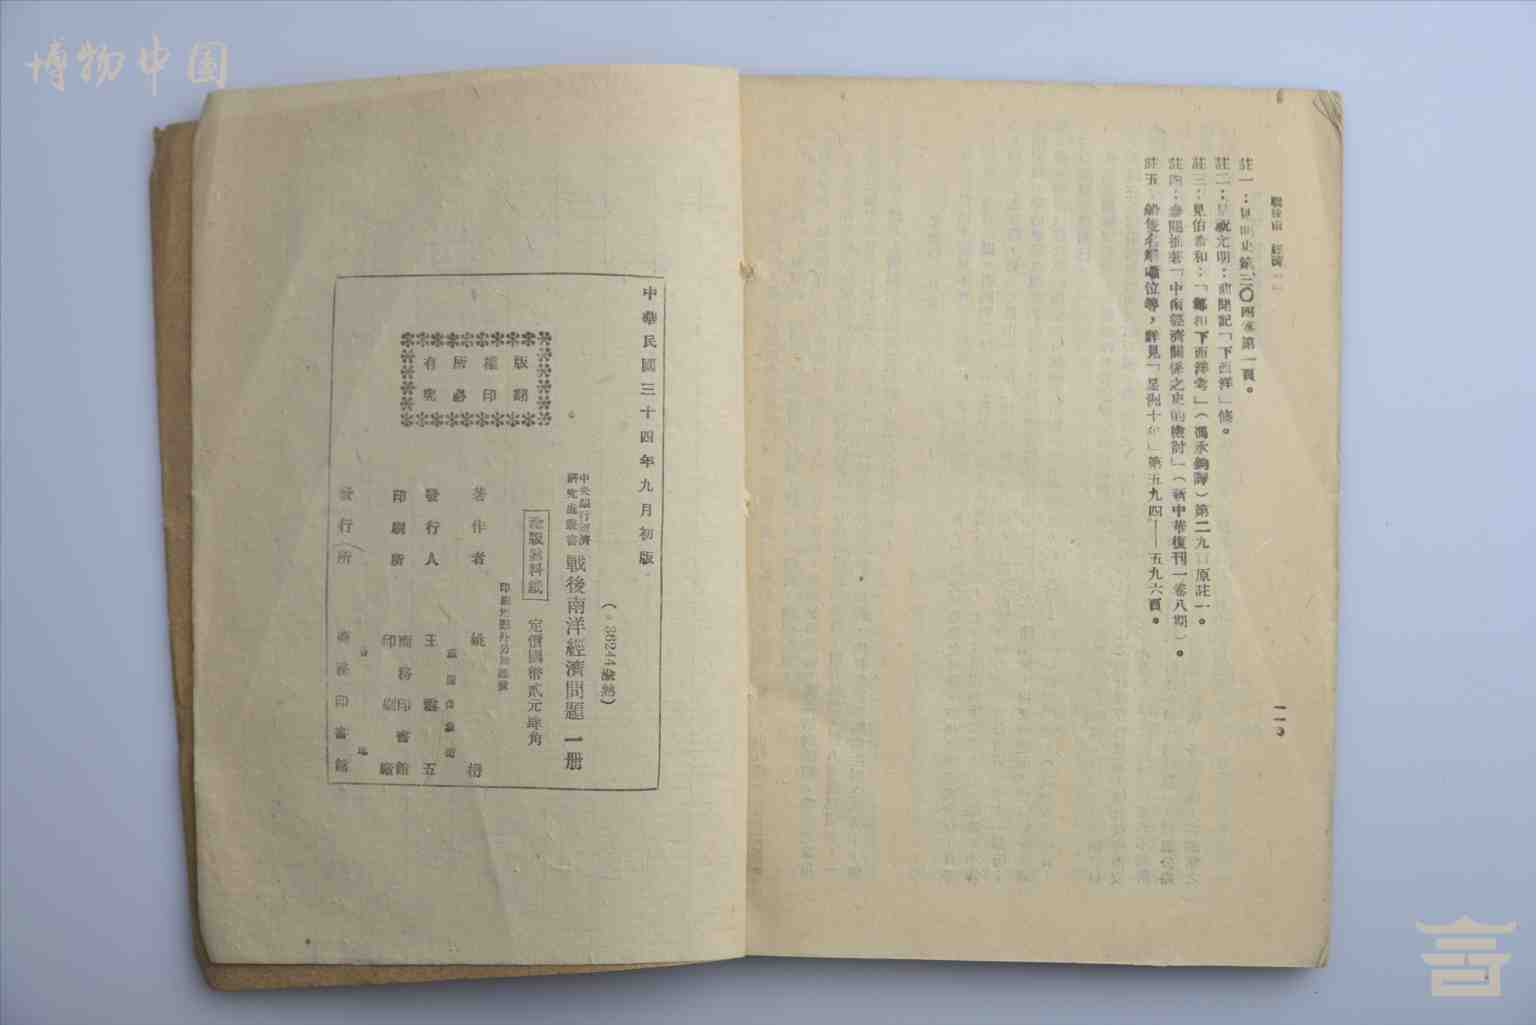 博物中国
註一：見明史第三〇四卷第一頁。
註二：見祝允明：前聞記「下西洋」條。
註三：見伯希和：「鄭和下西洋考」（馮承鈞譯）第二九 原註一。
註四：參閱 著「中南經濟關係之史的檢討」（新中華復刊一卷八期）。
註五： 等，詳見「星洲十年」第五九四——五九六頁。
中華民國三十四年九月初版
（。36244渝熟）
中央銀行經濟
研究處叢書
戰後南洋經濟問題 一册
渝版熟料紙
定價國幣貳元 角
印刷地點外另加運費
版權所有
翻印必究
著作者 姚 枬
發行人 王 五
印刷所 商務印書館
印 廠
發行所 印書館